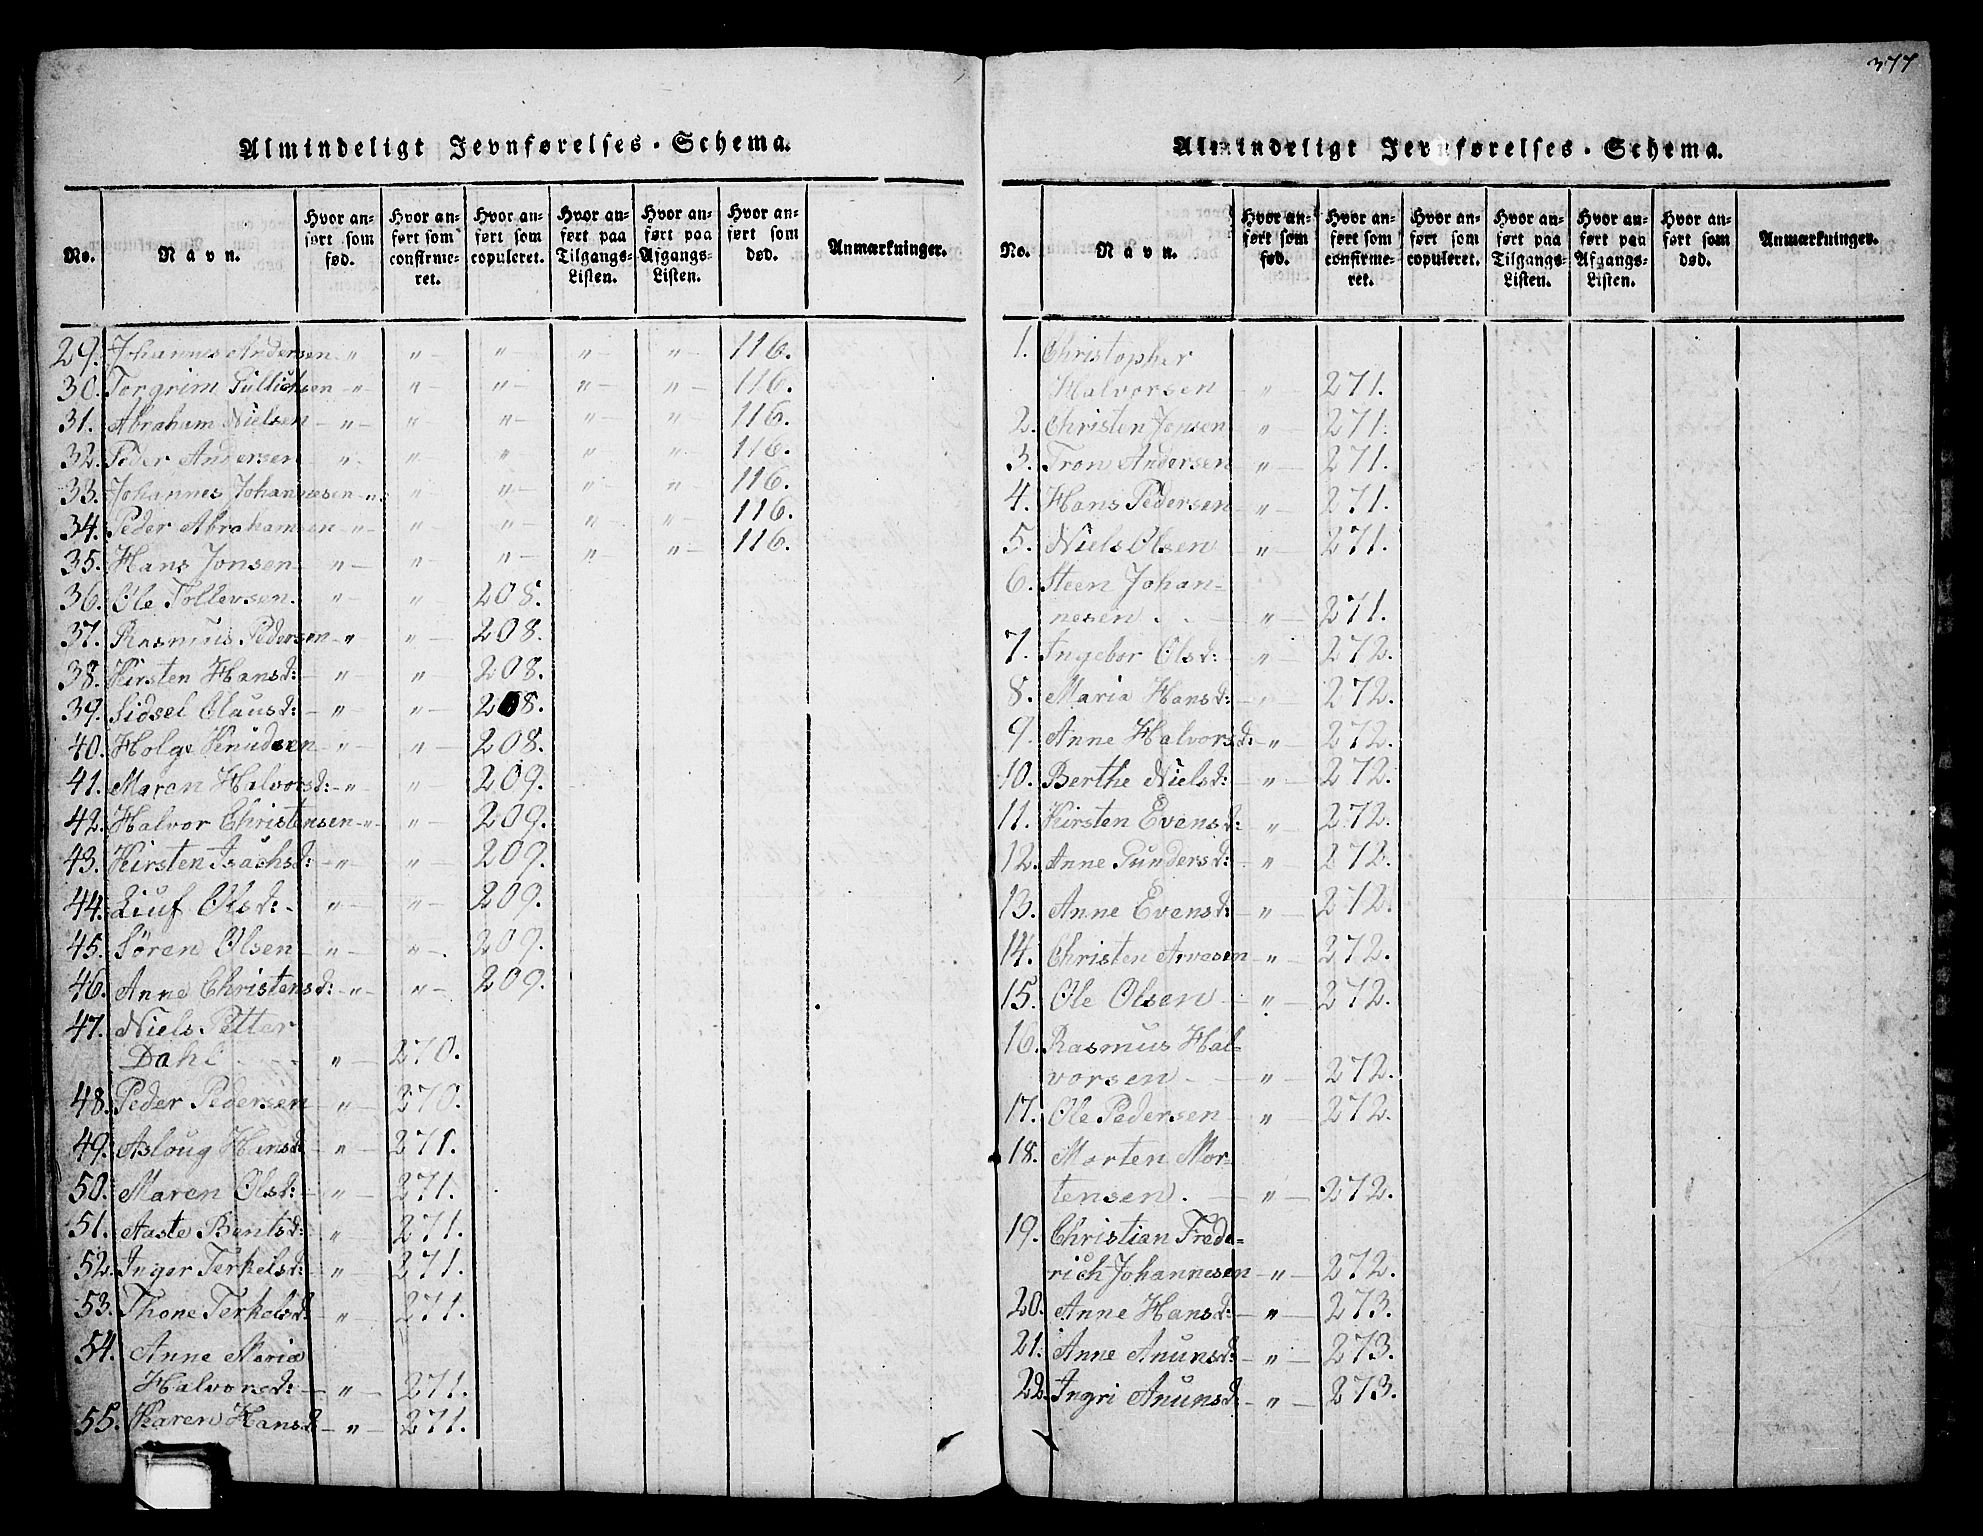 377
Almindeligt Jevnførelses-Schema.
No. Navn. Hvor anført som fød. Hvor anført som confirmeret. Hvor anført som copuleret. Hvor anført paa Tilgangs-Listen. Hvor anført paa Afgangs-Listen. Hvor anført som død. Anmærkninger.
29. Johannes Andersen - " " - " " - " - 116.
30. Torgrim Tullichsen - " - " - " - " - " - 116.
31. Abraham Nielsen - " - " - " - " - " - 116.
32. Peder Andersen - " " - " " - " - 116.
33. Johannes Johannesen - " " - " - " - " - 116.
34. Peder Abrahamsen - " - " - " " - " - 116.
35. Hans Jonsen - " - " - " - " - " - 116.
36. Ole Tollevsen. " - " - 208.
37. Rasmus Pedersen - " " - 208.
38. Kirsten Hansd: - " - " - 208.
39. Sidsel Clausd: - " - " - 208.
40. Holge Knudsen - " - " - 208.
41. Maren Halvorsd: - " - " - 209.
42. Halvor Christensen - " - " - 209.
43. Kirsten Isachsd: - " - " - 209.
44. Liuf Olsd: - " - " - 209.
45. Sören Olsen - " - " - 209.
46. Anne Christensd: - " - " - 209.
47. Niels Petter
Dahl - " - 270.
48. Peder Pedersen - " - 270.
49. Asloug Hansd: - " - 271.
50. Maren Olsd: - " - 271.
51. Aaste Bentsd: " - 271.
52. Inger Terkelsd: - " - 271.
53. Thone Terkelsd: " - 271.
54. Anne Maria
Halvorsd: - " - 271.
55. Karen Hansd: - " - 271.
Almindeligt Jevnførelses-Schema.
No. Navn. Hvor anført som fød. Hvor anført som confirmeret. Hvor anført som copuleret. Hvor anført paa Tilgangs-Listen. Hvor anført paa Afgangs-Listen. Hvor anført som død. Anmærkninger.
1. Christopher
Halvorsen - " - 271.
2. Christen Jensen " - 271.
3. Tron Andersen " - 271.
4. Hans Pedersen - " - 271.
5. Niels Olsen " - 271.
6. Steen Johan-
nesen. - " - 271.
7. Ingebor Olsd: - " - 272.
8. Maria Hansd: - " - 272.
9. Anne Halvorsd: - " - 272.
10. Berthe Nielsd: - " - 272.
11. Kirsten Evensd: " - 272.
12. Anne Gundersd: - " - 272.
13. Anne Evensd: - " - 272.
14. Christen Arvesen - " - 272.
15. Ole Olsen - " - 272.
16. Rasmus Hal-
vorsen - " - 272.
17. Ole Pedersen - " - 272.
18. Morten Mor-
tensen. - " - 272.
19. Christian Frede-
rich Johannesen - " - 272.
20. Anne Hansd: - " - 273.
21. Anne Anunsd: - " - 273.
22. Ingri Anunsd: - " - 273.